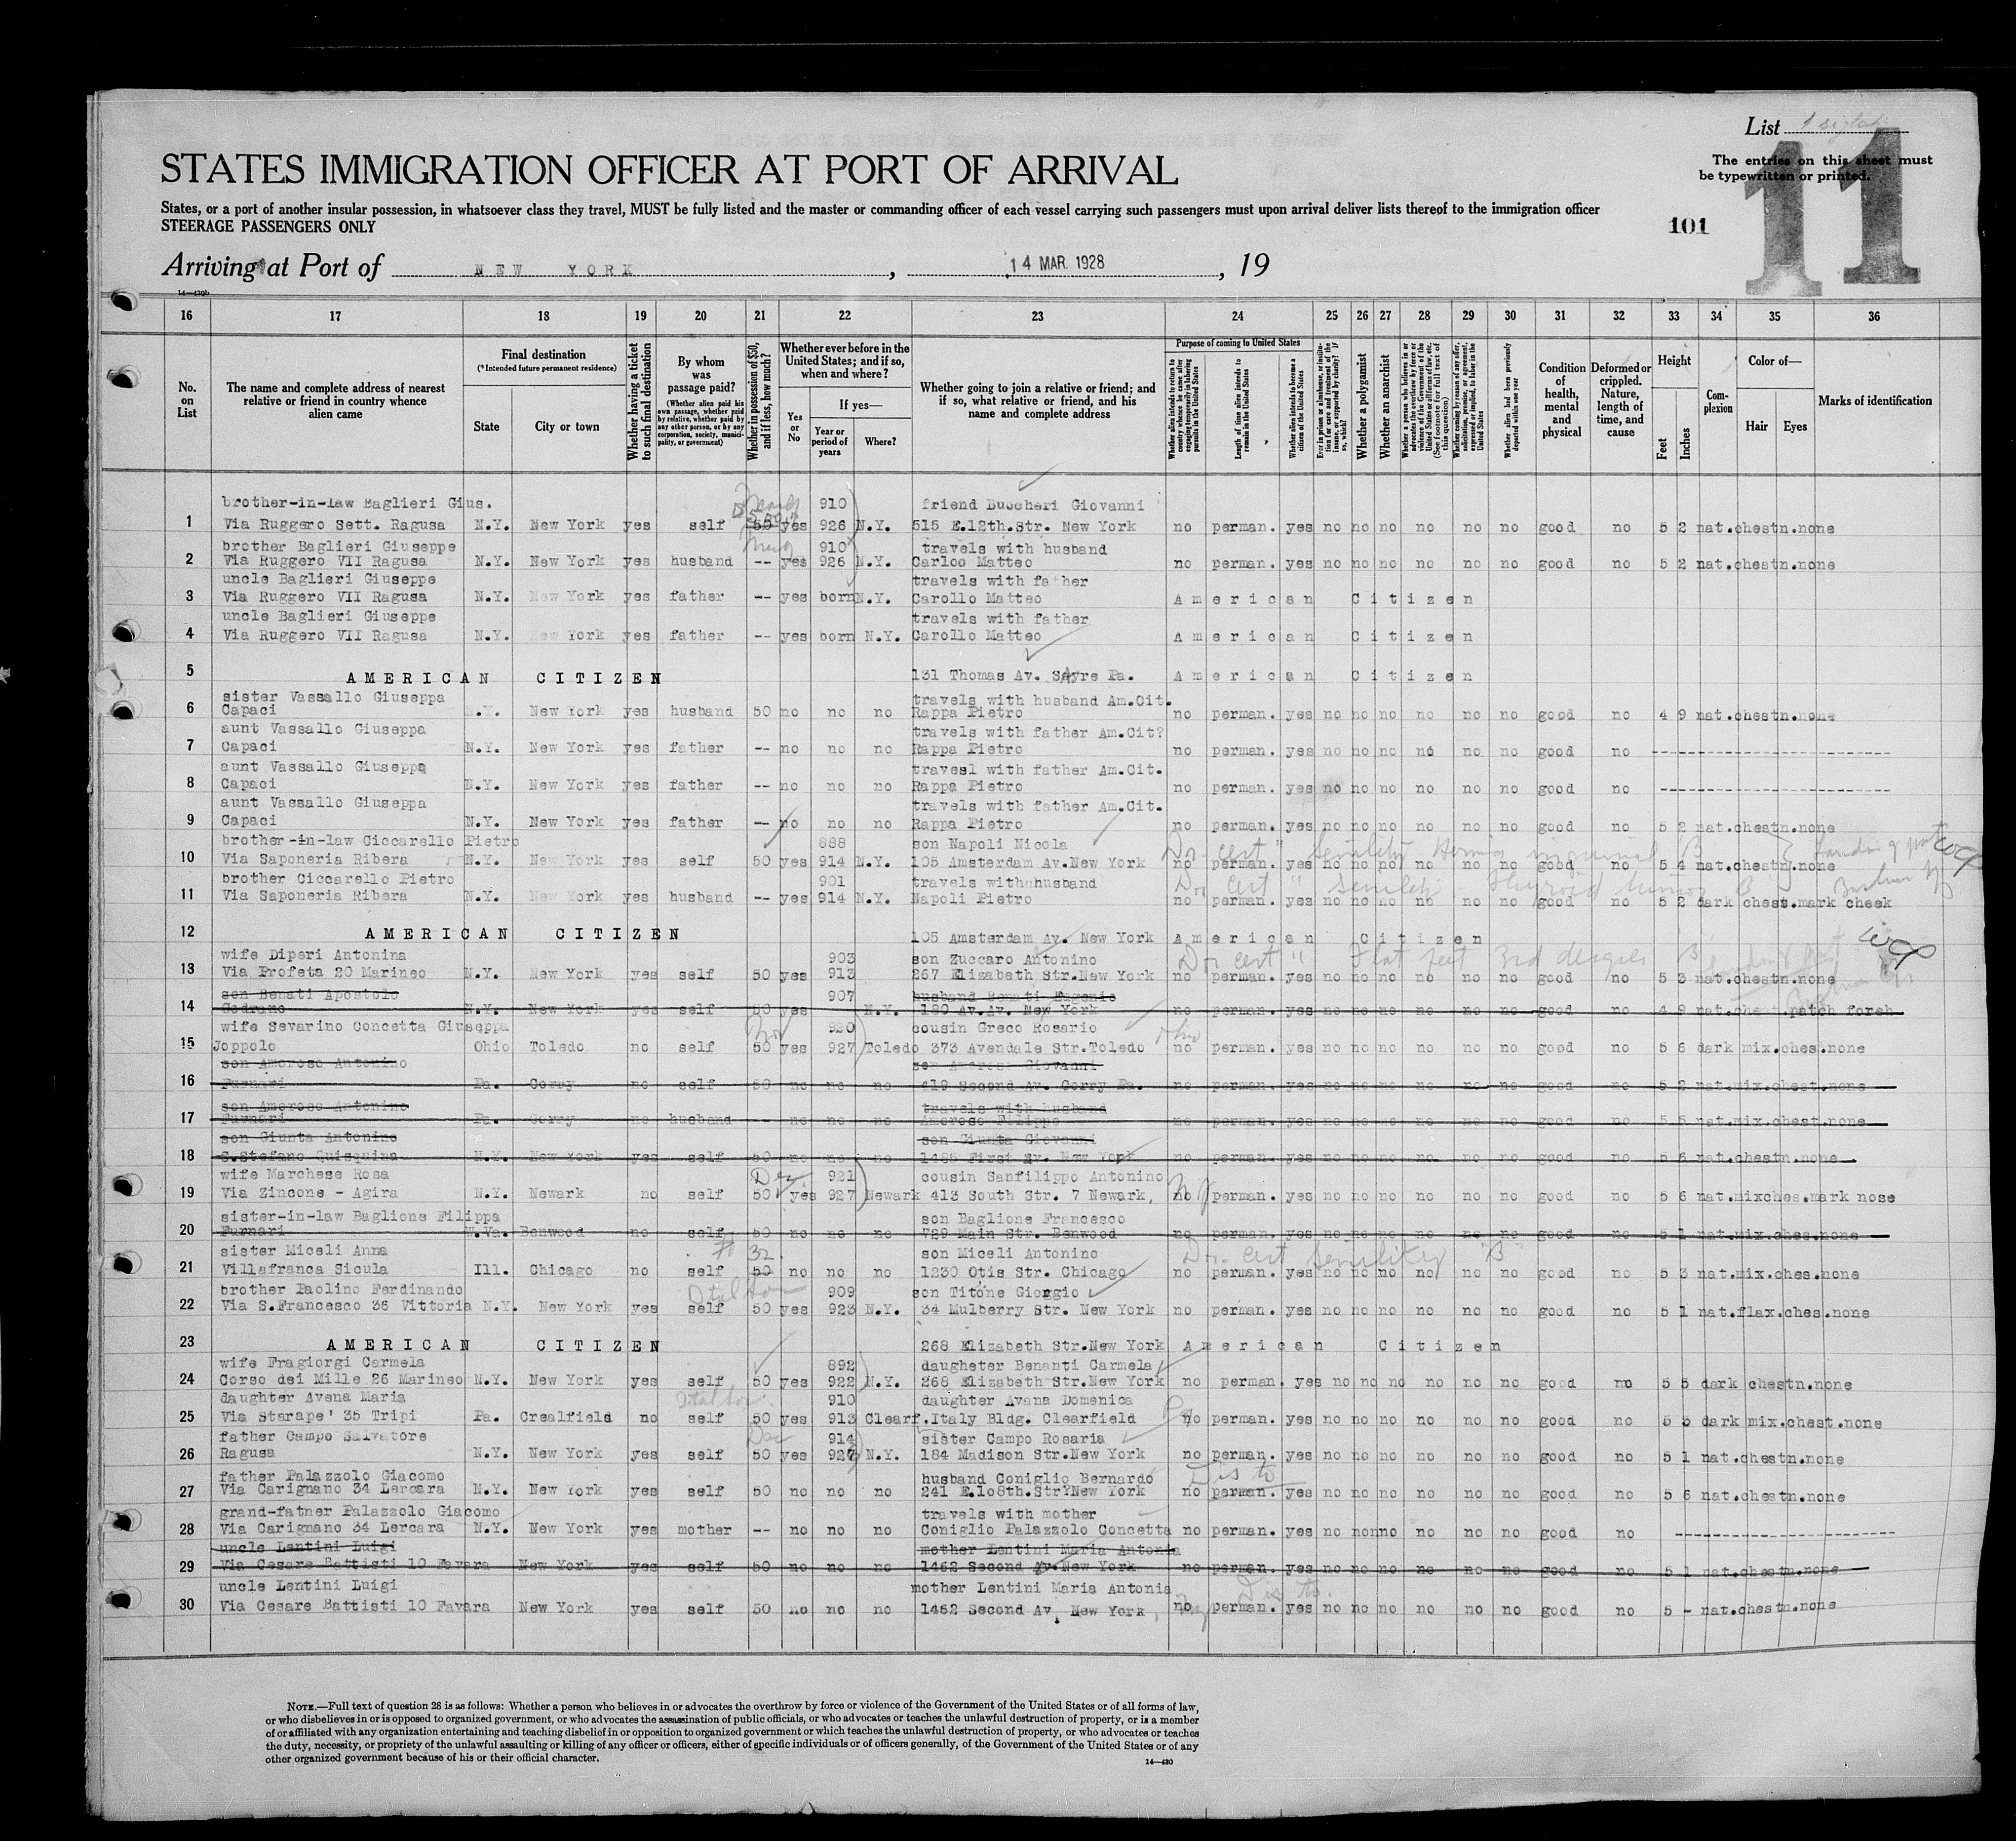 List
The entries on this sheet must
be typewritten or printed.
11
STATES IMMIGRATION OFFICER AT PORT OF ARRIVAL
States, or a port of another insular possession, in whatsoever class they travel, MUST be fully listed and the master or commanding officer of each vessel carrying such passengers must upon arrival deliver lists thereof to the immigration officer
STEERAGE PASSENGERS ONLY
101
Arriving at Port of NEW YORK , 14 MAR. 1928 , 19
14—430b
16 17 18 19 20 21 22 23 24 25 26 27 28 29 30 31 32 33 34 35 36
No. on List
The name and complete address of nearest relative or friend in country whence alien came
Final destination
(*Intended future permanent residence)
State
City or town
Whether having a ticket to such final destination
By whom was passage paid?
(Whether alien paid his own passage, whether paid by relative, whether paid by any other person, or by any corporation, society, municipality, or government)
Whether in possession of $50, and if less, how much?
Whether ever before in the United States; and if so, when and where?
Yes or No
If yes—
Year or period of years
Where?
Whether going to join a relative or friend; and if so, what relative or friend, and his name and complete address
Purpose of coming to United States
Whether alien intends to return to country whence he came after engaging temporarily in laboring pursuits in the United States
Length of time alien intends to remain in the United States
Whether alien intends to become a citizen of the United States
Whether a polygamist
Whether an anarchist
Whether alien had been previously deported within one year
Condition of health, mental and physical
Deformed or crippled. Nature, length of time, and cause
Height
Feet
Inches
Complexion
Color of—
Hair
Eyes
Marks of identification
brother-in-law Baglieri Gius. 910 friend Buscheri Giovanni
1 Via Ruggero Sett. Ragusa N.Y. New York yes self 50 yes 926 N.Y. 515 E.12th.Str. New York no perman. yes no no no no no no good no 5 2 nat.chestn.none
brother Baglieri Giuseppe 910 travels with husband
2 Via Ruggero VII Ragusa N.Y. New York yes husband -- yes 926 N.Y. Carloo Matteo no perman. yes no no no no no no good no 5 2 nat.chestn.none
uncle Baglieri Giuseppe travels with father
3 Via Ruggero VII Ragusa N.Y. New York yes father -- yes born N.Y. Carollo Matteo American Citizen
uncle Baglieri Giuseppe travels with father
4 Via Ruggero VII Ragusa N.Y. New York yes father -- yes born N.Y. Carollo Matteo American Citizen
5 AMERICAN CITIZEN 131 Thomas Av. Sayre Pa. American Citizen
sister Vassallo Giuseppa travels with husband Am.Cit.
6 Capaci N.Y. New York yes husband 50 no no no Rappa Pietro no perman. yes no no no no no no good no 4 9 nat.chestn.none
aunt Vassallo Giuseppa travels with father Am.Cit?
7 Capaci N.Y. New York yes father -- no no no Rappa Pietro no perman. yes no no no no no no good no
aunt Vassallo Giuseppa travesl with father Am.Cit.
8 Capaci N.Y. New York yes father -- no no no Rappa Pietro no perman. yes no no no no no no good no
aunt Vassallo Giuseppa travels with father Am.Cit.
9 Capaci N.Y. New York yes father -- no no no Rappa Pietro no perman. yes no no no no no no good no 5 2 nat.chestn.none
brother-in-law Ciccarello Pietro 888 son Napoli Nicola Dr. cert "senility
10 Via Saponeria Ribera N.Y. New York yes self 50 yes 914 N.Y. 105 Amsterdam Av.New York no perman. yes no no no no no no good no 5 4 nat.chestn.none
brother Ciccarello Pietro 901 travels with husband Dr. cert "
11 Via Saponeria Ribera N.Y. New York yes husband -- yes 914 N.Y. Napoli Pietro no perman. yes no no no no no no good no 5 2 dark chest.mark cheek
12 AMERICAN CITIZEN 105 Amsterdam Av. New York American Citizen
wife Diperi Antonina 903 son Zuccaro Antonino Dr. cert " Flat feet 3rd degree B
13 Via Profeta 20 Marineo N.Y. New York yes self 50 yes 913 267 Elizabeth Str.New York no perman. yes no no no no no no good no 5 3 nat.chestn.none
son Benati Apostolo 907 husband Benati Eugenio
14 Codrano N.Y. New York yes self 50 yes N.Y. 180 Av.Av. New York no perman. yes no no no no no no good no 4 9 nat.chest.patch foreh
wife Sevarino Concetta Giuseppa 920 cousin Greco Rosario
15 Joppolo Ohio Toledo no self 50 yes 927 Toledo 373 Avendale Str.Toledo no perman. yes no no no no no no good no 5 6 dark mix.ches.none
son Amoroso Antonino son Amorosi Giovanni
16 Furnari Pa. Corry no self 50 no no no 419 Second Av. Corry Pa. no perman. yes no no no no no no good no 5 2 nat.mix.chest.none
son Amoroso Antonino travels with husband
17 Furnari Pa. Corry no husband -- no no no Amoroso Filippo no perman. yes no no no no no no good no 5 5 nat.mix.chest.none
son Giunta Antonino son Giunta Giovanni
18 S.Stefano Quisquina N.Y. New York yes self 50 no no no 1485 First Av. New York no perman. yes no no no no no no good no 5 6 nat.chestn.none
wife Marchese Rosa Dec 921 cousin Sanfilippo Antonino
19 Via Zincone - Agira N.Y. Newark no self 50 yes 927 Newark 413 South Str. 7 Newark, no perman. yes no no no no no no good no 5 6 nat.mixches.mark nose
sister-in-law Baglione Filippa son Baglione Francesco
20 Furnari W.Va. Benwood no self 50 no no no 729 Main Str. Benwood no perman. yes no no no no no no good no 5 1 nat.mix.ches.none
sister Miceli Anna 32 son Miceli Antonino Dr. cert senility "B"
21 Villafranca Sicula Ill. Chicago no self 50 no no no 1230 Otis Str. Chicago no perman. yes no no no no no no good no 5 3 nat.mix.ches.none
brother Paolino Ferdinando 909 son Titone Giorgio
22 Via S.Francesco 36 Vittoria N.Y. New York yes self 50 yes 923 N.Y. 34 Mulberry Str. New York no perman. yes no no no no no no good no 5 1 nat.flax.ches.none
23 AMERICAN CITIZEN 268 Elizabeth Str.New York American Citizen
wife Fragiorgi Carmela 892 daugheter Benanti Carmela
24 Corso dei Mille 26 Marineo N.Y. New York yes self 50 yes 922 N.Y. 268 Elizabeth Str.New York no perman. yes no no no no no no good no 5 5 dark chestn.none
daughter Avena Maria 910 daughter Avana Domenica
25 Via Starape' 35 Tripi Pa. Crealfield no self 50 yes 913 Clearf.Italy Bldg. Clearfield no perman. yes no no no no no no good no 5 5 dark mix.chest.none
father Campo Salvatore Dec 914 sister Campo Rosaria
26 Ragusa N.Y. New York yes self 50 yes 927 N.Y. 184 Madison Str.New York no perman. yes no no no no no no good no 5 1 nat.chestn.none
father Palazzolo Giacomo husband Coniglio Bernardo
27 Via Carignano 34 Lercara N.Y. New York yes self 50 no no no 241 E.108th.Str?New York no perman. yes no no no no no no good no 5 6 nat.chestn.none
grand-father Palazzolo Giacomo travels with mother
28 Via Carignano 34 Lercara N.Y. New York yes mother -- no no no Coniglio Palazzolo Concetta no perman. yes no no no no no no good no
uncle Lentini Luigi mother Lentini Maria Antonia
29 Via Cesare Battisti 10 Favara New York yes self 50 no no no 1462 Second Av.New York no perman. yes no no no no no no good no 5 1 nat.chestn.none
uncle Lentini Luigi mother Lentini Maria Antonia
30 Via Cesare Battisti 10 Favara New York yes self 50 no no no 1462 Second Av. New York, no perman. yes no no no no no no good no 5 - nat.chestn.none
NOTE.—Full text of question 28 is as follows: Whether a person who believes in or advocates the overthrow by force or violence of the Government of the United States or of all forms of law,
or who disbelieves in or is opposed to organized government, or who advocates the assassination of public officials, or who advocates or teaches the unlawful destruction of property, or is a member
of or affiliated with any organization entertaining and teaching disbelief in or opposition to organized government or which teaches the unlawful destruction of property, or who advocates or teaches
the duty, necessity, or propriety of the unlawful assaulting or killing of any officer or officers, either of specific individuals or of officers generally, of the Government of the United States or of any
other organized government because of his or their official character.
14—430